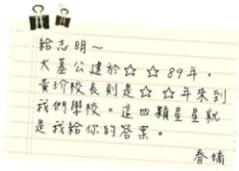 給志明～
大墓公建於☆☆89年，
黃玠校長則是☆☆年來到
我們學校。這四顆星星就
是我給你的答案。
春嬌